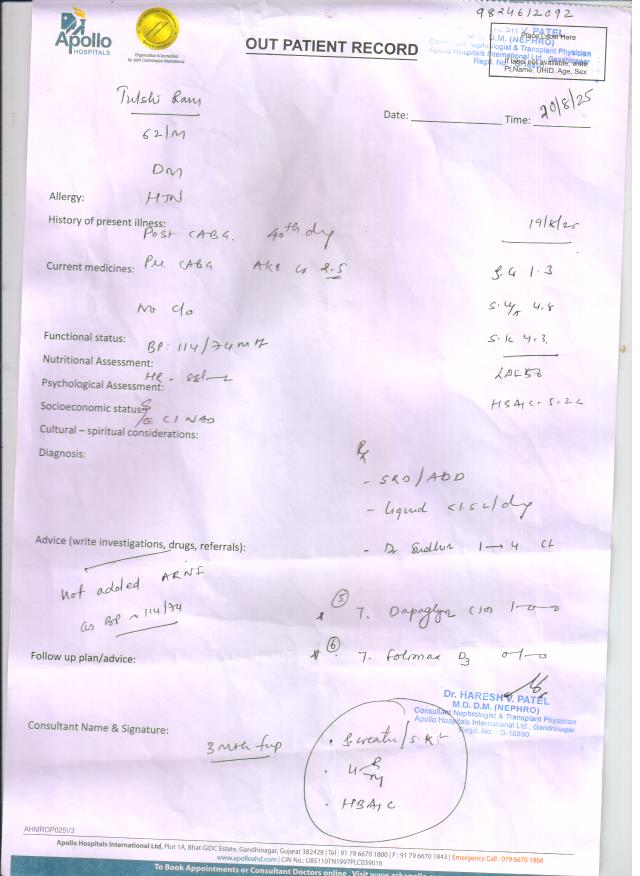 9824612092
Apollo
HOSPITALS
Organization Accredited
by Joint Commission International
OUT PATIENT RECORD
Dr. HARESH V. PATEL
M.D. D.M. (NEPHRO)
Consultant Nephrologist & Transplant Physician
Apollo Hospitals International Ltd., Gandhinagar
Place Label Here
If label not available, write
Pt.Name, UHID, Age, Sex
Tulshi Ram
Date: Time: 20/8/25
62/M
DM
Allergy: HTN
History of present illness: 19/8/25
Post CABG. 40th day
Current medicines: Pre CABG AKI Cr 2.5
S.Cr 1.3
No c/o
4.8
S.K 4.3
Functional status:
BP: 114/74
Nutritional Assessment:
HR -
Psychological Assessment:
HBA1C - 5.2
Socioeconomic status:
NAD
Cultural – spiritual considerations:
Diagnosis:
Rx
- SRD/ADD
- liquid <1.5 L/day
Advice (write investigations, drugs, referrals):
- Dr 1 → 4
Not added ARNI
as BP ~ 114/74
⑤ T. (10) 1-0-0
Follow up plan/advice:
⑥ T. D3 0-1-0
Dr. HARESH V. PATEL
M.D. D.M. (NEPHRO)
Consultant Nephrologist & Transplant Physician
Apollo Hospitals International Ltd., Gandhinagar
Regd. No.: G-16890
Consultant Name & Signature:
3 mth fup
• S.creatn/S.K+
• HBA1C
AHMROP025V3
Apollo Hospitals International Ltd, Plot 1A, Bhat GIDC Estate, Gandhinagar, Gujarat 382428 | Tel : 91 79 6670 1800 | F : 91 79 6670 1843 | Emergency Call : 079 6670 1866
www.apolloahd.com | CIN No.: U85110TN1997PLC039016
To Book Appointments or Consultant Doctors online, Visit